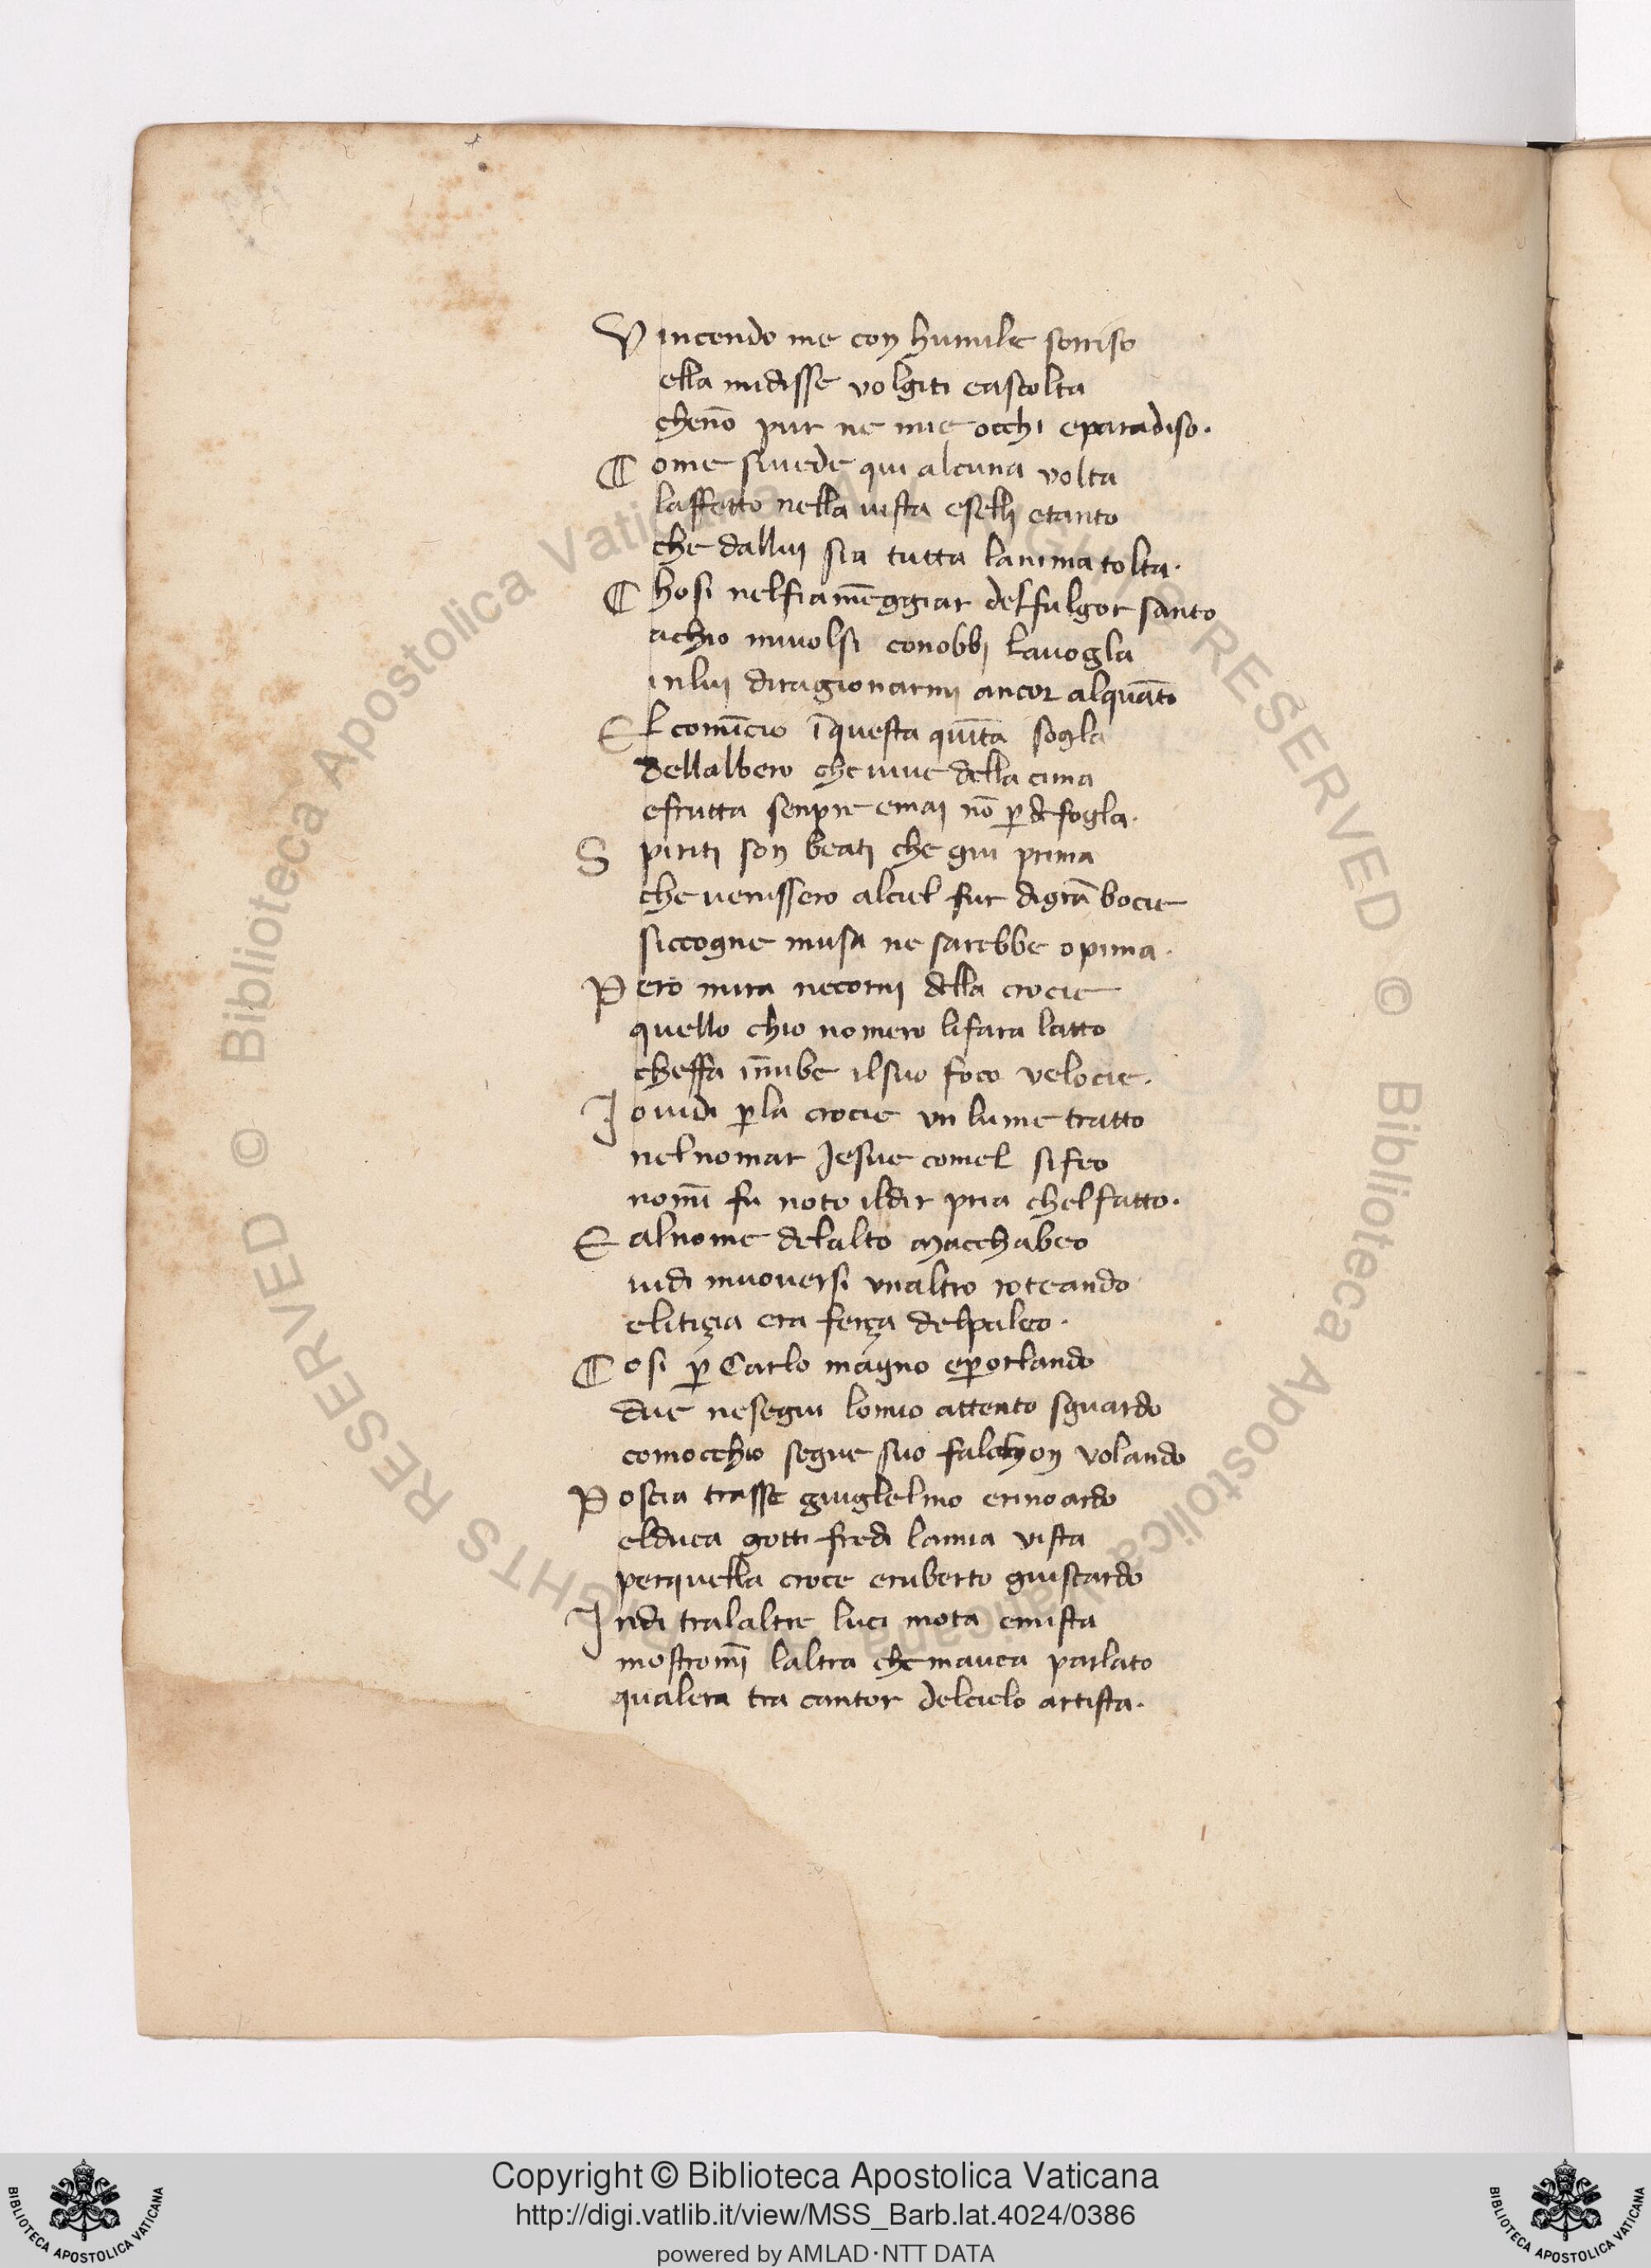 Vincendo me con humile sorriso
ella midisse volgiti eascolta
chenō pur ne mie occhi eparadiso.
Come siuede qui alcuna volta
laffetto nella uista eselli etanto
che dallui sia tutta lanima tolta.
Chosi nelfiamēggiar delfulgor santo
achio miuolsi conobbi lauogla
inlui diragionarmi ancor alquāto
El comīcio ī questa quīta sogla
dellalbero che uiue della cima
efrutta senpre emai nō ꝑde fogla.
Spiriti son beati che giu prima
che uenissero alciel fur digrā bocie
siccogne musa ne sarebbe opima.
Pero mira necorni della crocie
quello chio nomero lifara latto
cheffa īnube ilsuo foco velocie.
Io uidi ꝑla crocie vn lume tratto
nelnomar Jesue comel sifeo
nomī fu noto ildir pria chelfatto.
E alnome delalto macchabeo
uidi muouersi vnaltro roteando
eliticia era ferça delpaleo.
Cosi ꝑ Carlo magno eꝑorlando
due nesegui lomio attento sguardo
comocchio segue suo falchon volando
Poscia trasse guiglelmo erinoardo
elduca gottifredi lamia vista
perquella croce eruberto guiscardo
Indi tralaltre luci mota emista
mostromī laltra chemauea parlato
qualera tra cantor delcielo artista.
Copyright © Biblioteca Apostolica Vaticana
http://digi.vatlib.it/view/MSS_Barb.lat.4024/0386
powered by AMLAD·NTT DATA
BIBLIOTECA APOSTOLICA VATICANA
BIBLIOTECA APOSTOLICA VATICANA
© Biblioteca Apostolica Vaticana ALL RIGHTS RESERVED © Biblioteca Apostolica Vaticana ALL RIGHTS RESERVED